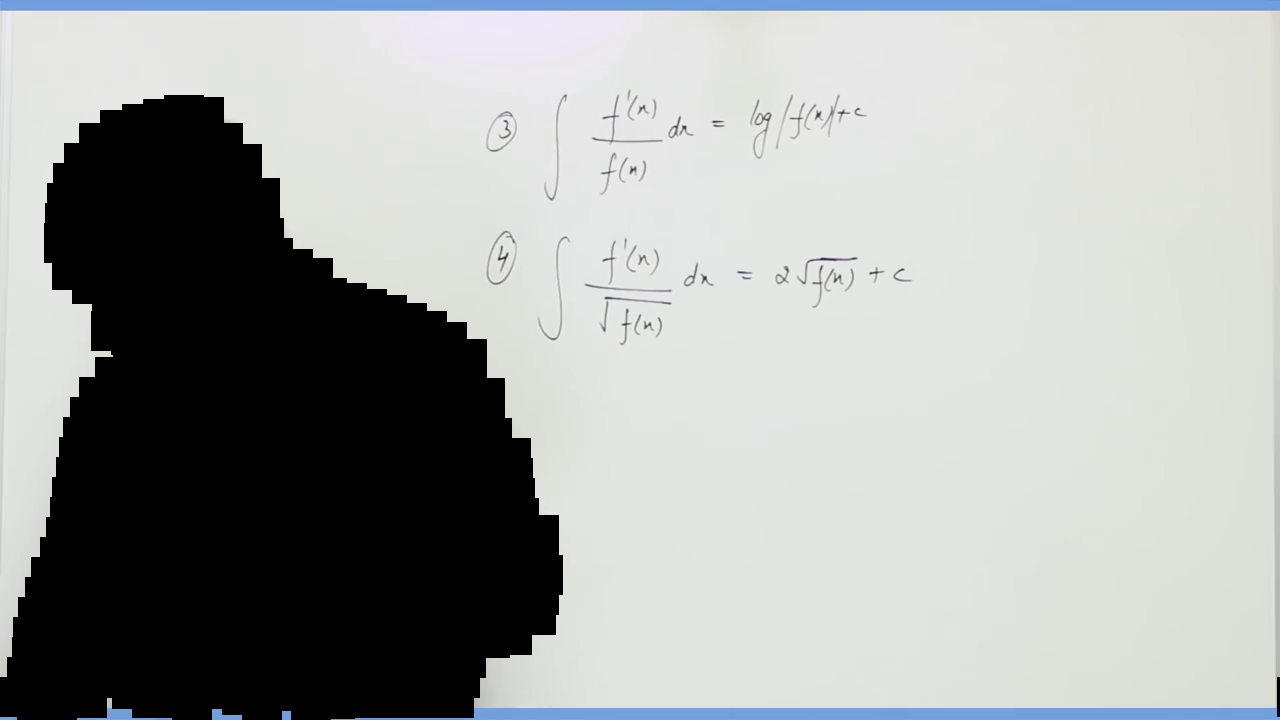 ③ ∫ f'(x)/f(x) dx = log|f(x)|+c
④ ∫ f'(x)/√f(x) dx = 2√f(x) + c